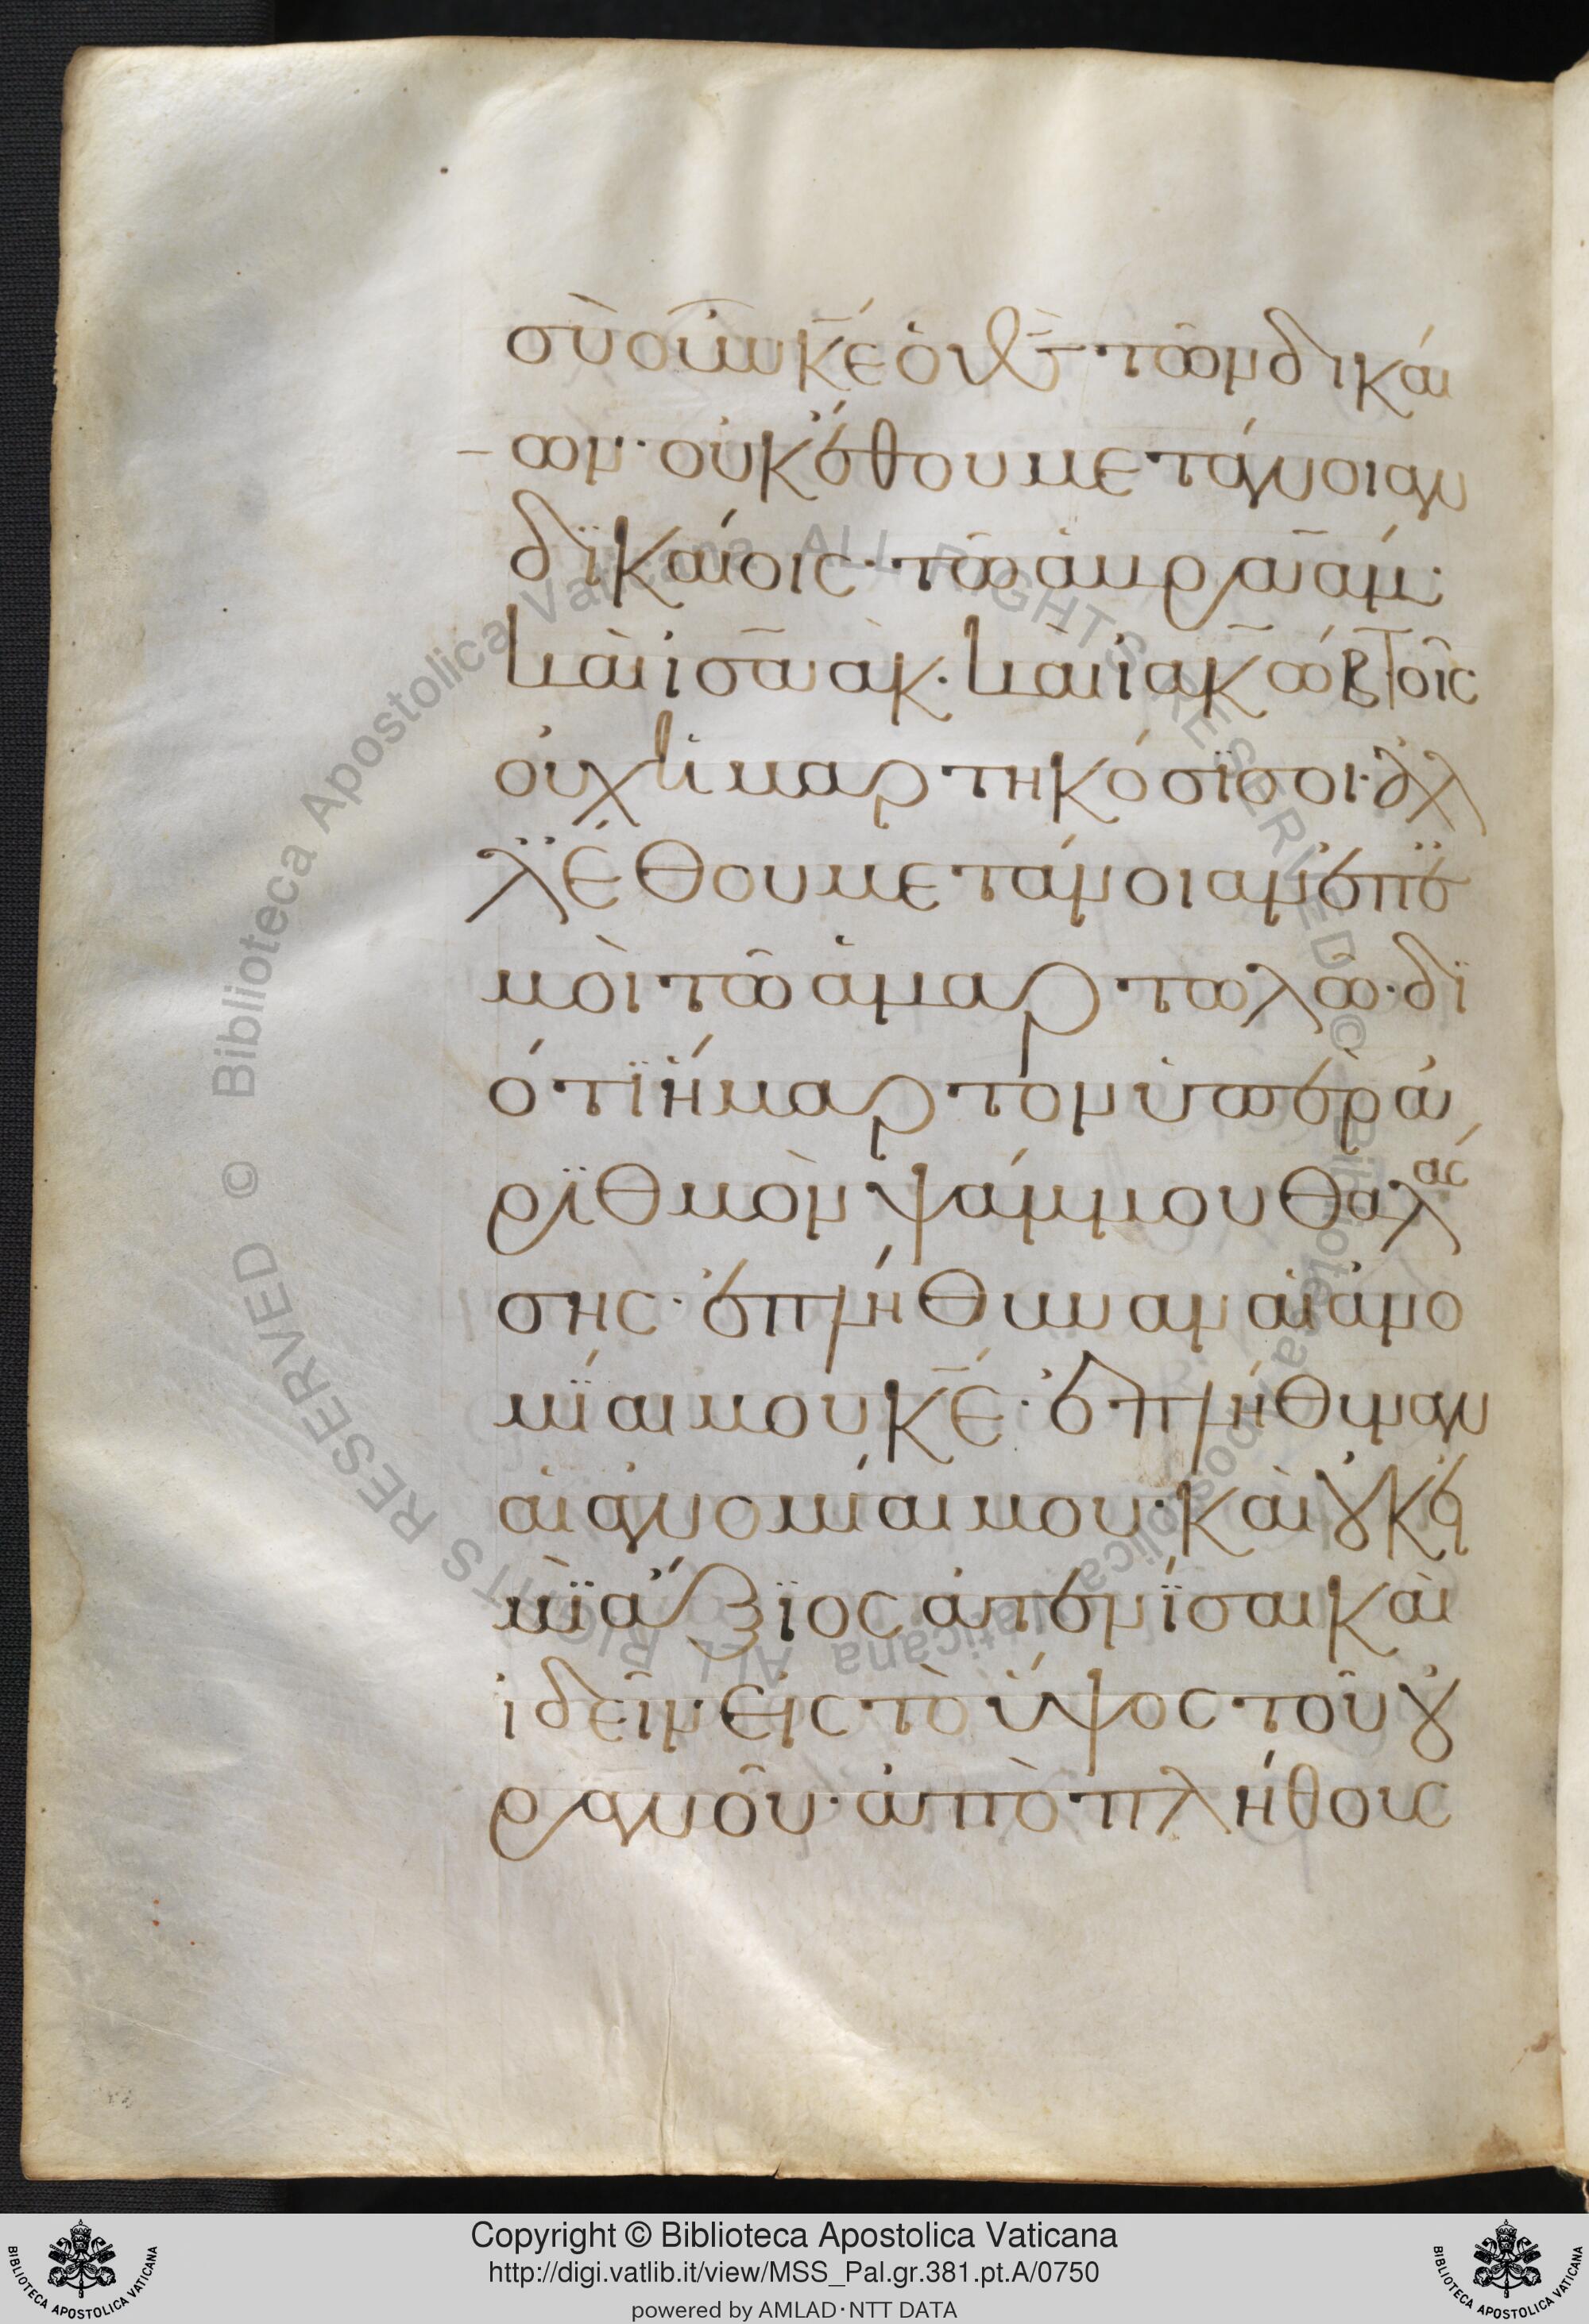 σὺ οῦν κ̅έ ὁ θ̅ς̅ τῶν δικάι
ων· οὐκ ἔθου μετάνοιαν
δϊκαίοις· τῶ ἀβρααμ·
καὶ ἰσαὰκ· καὶ ϊακώβ τοῖς
οὐχ ἡμαρτηκόσϊ σοι· ἀλ
λ̈ ἔθου μετάνοιαν ἐπ̈ ἐ
μοὶ τῶ ἁμαρτωλῶ· δϊ
ότϊ ἥμαρτον ὑπὲρ ἀ
ρϊθμὸν ψάμμου θαλάσ
σης· ἐπλήθυναν αἱ ἀνο
μΐαι μου κ̅έ· ἐπλήθυναν
αἱ ἀνομίαι μου· καὶ οὐκ εἰ
μὶ ἄξϊος ἀτενΐσαι καὶ
ἰδεῖν εἰς τὸ ὕψος τοῦ οὐ
ρανοῦ· ἀπὸ πλήθους
© Biblioteca Apostolica Vaticana ALL RIGHTS RESERVED © Biblioteca Apostolica Vaticana ALL RIGHTS RESERVED
Copyright © Biblioteca Apostolica Vaticana
http://digi.vatlib.it/view/MSS_Pal.gr.381.pt.A/0750
powered by AMLAD·NTT DATA
BIBLIOTECA APOSTOLICA VATICANA
BIBLIOTECA APOSTOLICA VATICANA